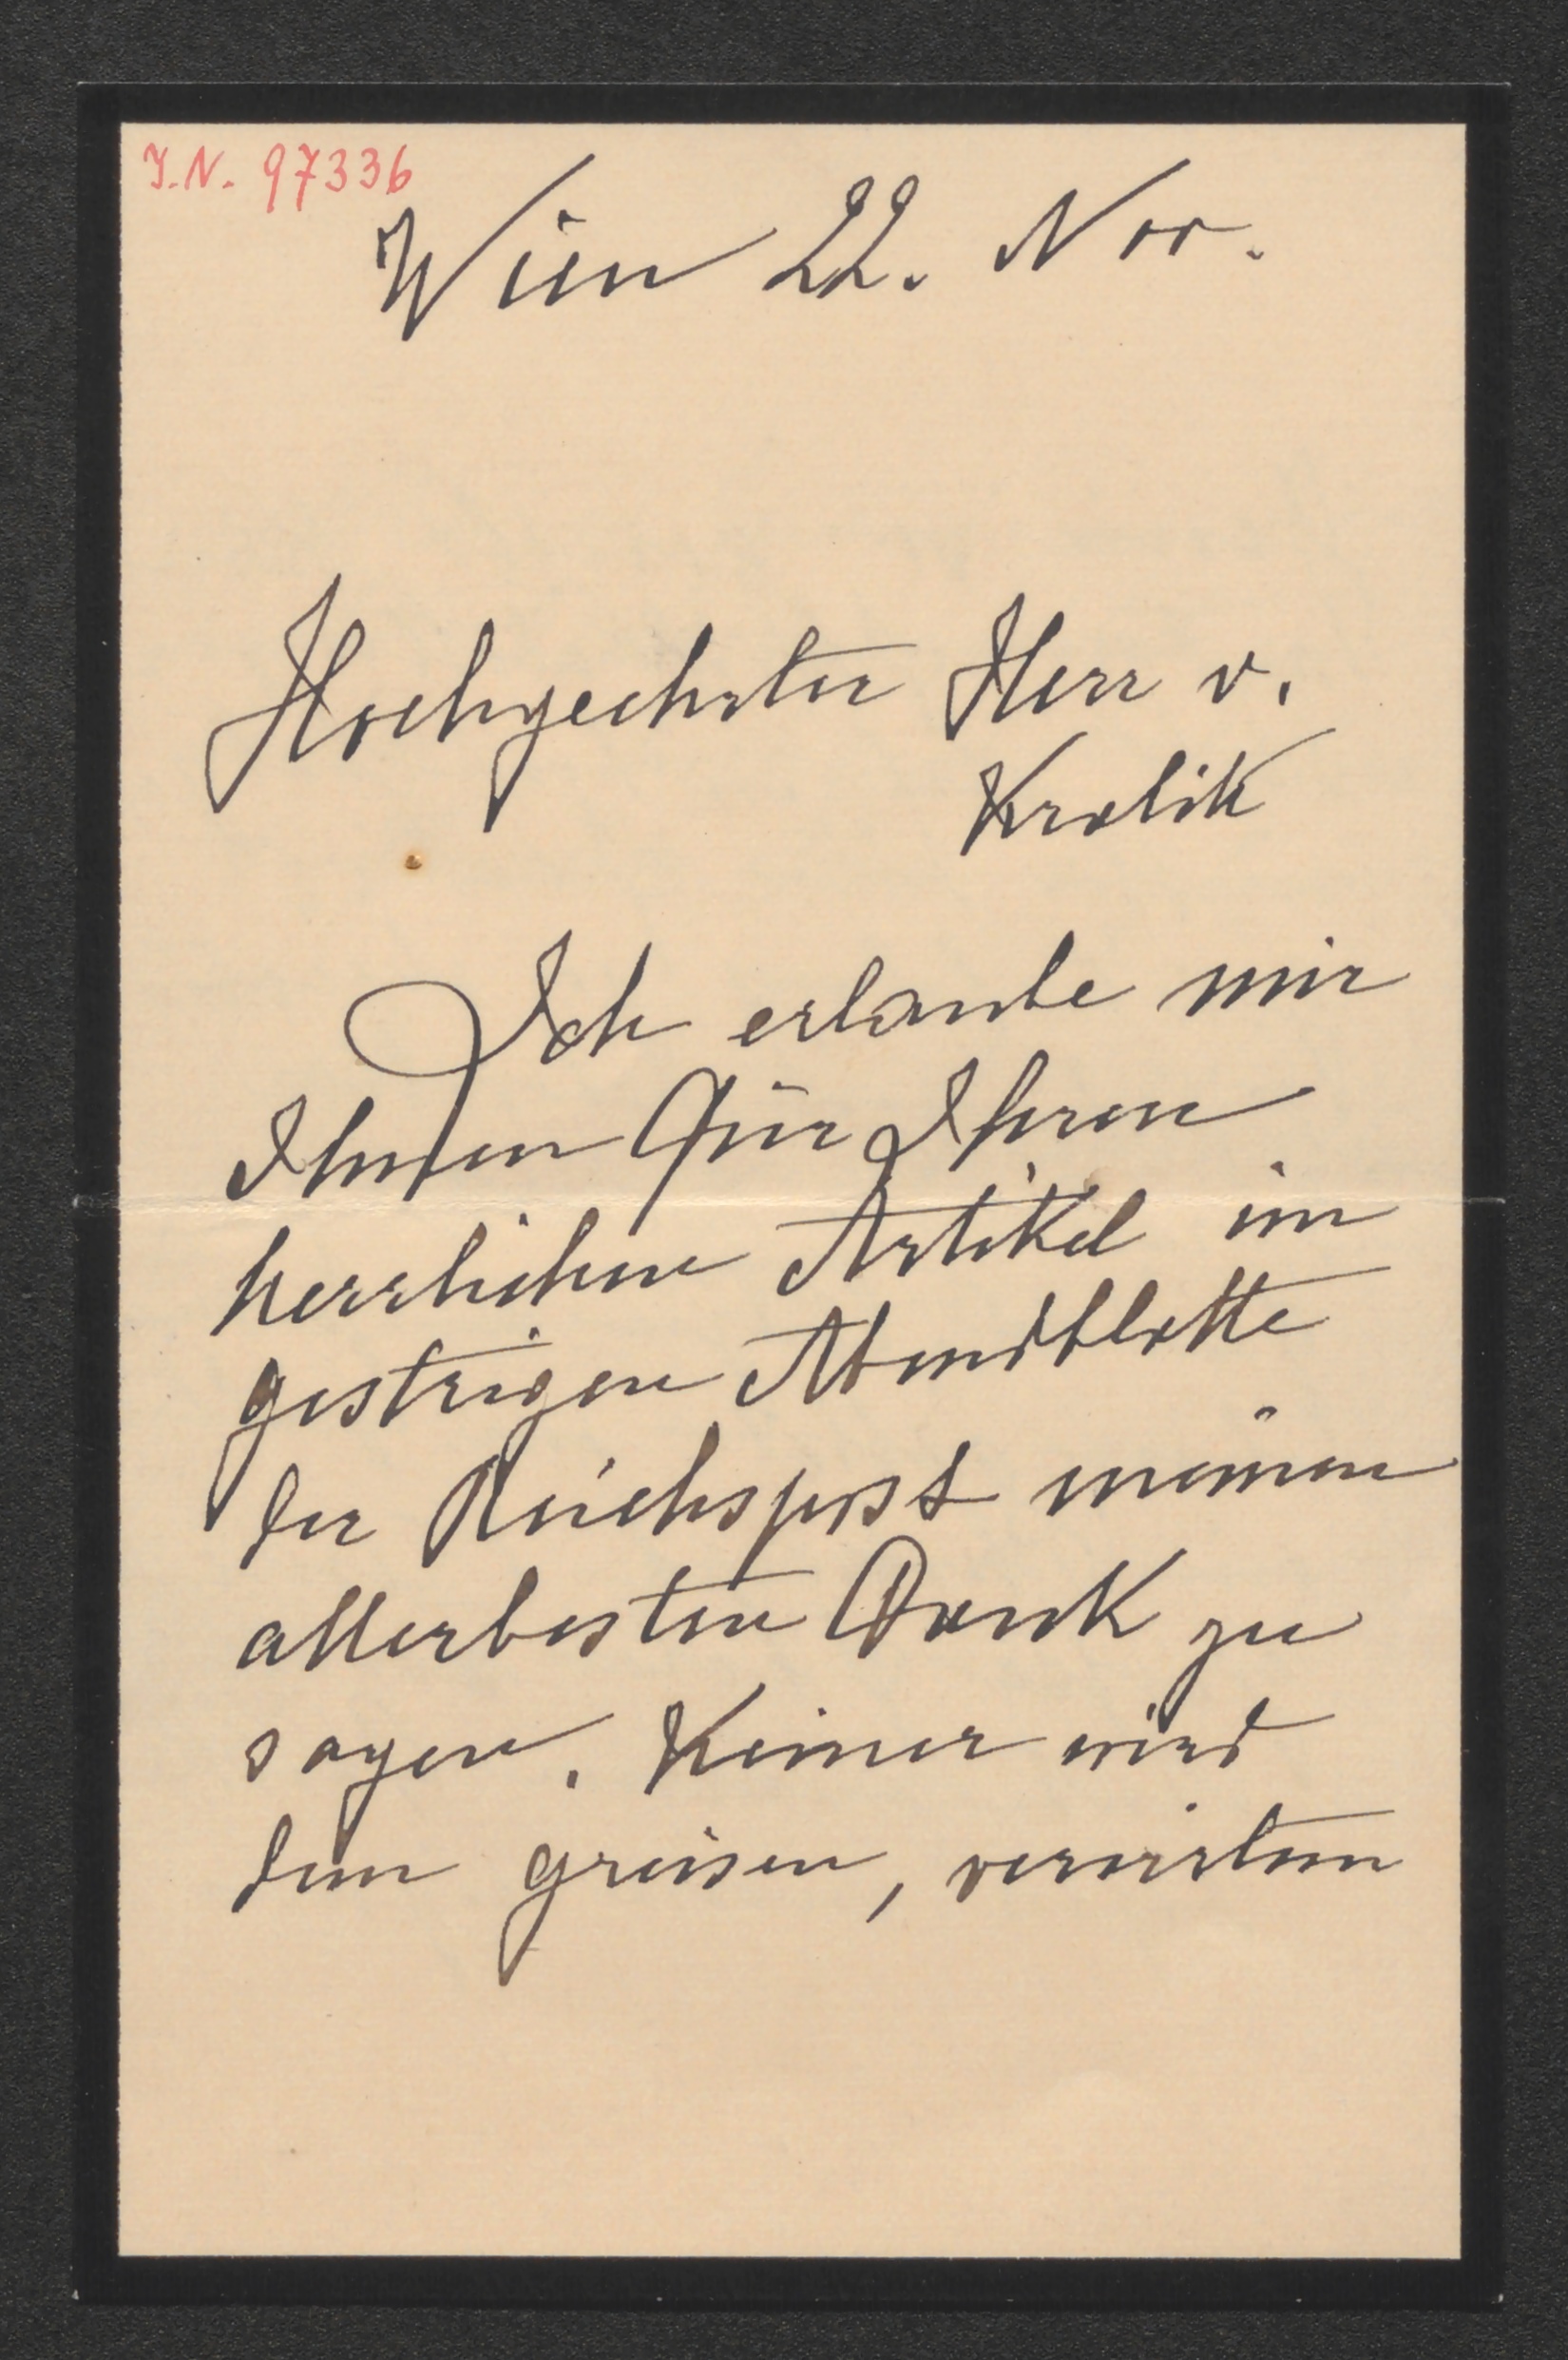 I.N. 97336
Wien 22. Nov.
Hochgeehrter Herr v.
Kralik
Ich erlaube mir
Ihnen für Ihren
herrlichen Artikel im
gestrigen Abendblatte
der Reichspost meinen
allerbesten Dank zu
sagen. Keiner wird
dem greisen, verwirrten